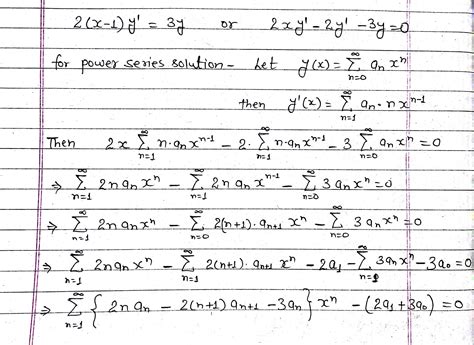 2(x-1)y' = 3y or 2xy' - 2y' - 3y = 0
for power series solution - Let y(x) = ∑_{n=0}^{∞} a_n x^n
then y'(x) = ∑_{n=1}^{∞} a_n · n x^{n-1}
Then 2x ∑_{n=1}^{∞} n·a_n x^{n-1} - 2· ∑_{n=1}^{∞} n·a_n x^{n-1} - 3 ∑_{n=0}^{∞} a_n x^n = 0
⇒ ∑_{n=1}^{∞} 2n a_n x^n - ∑_{n=1}^{∞} 2n a_n x^{n-1} - ∑_{n=0}^{∞} 3 a_n x^n = 0
⇒ ∑_{n=1}^{∞} 2n a_n x^n - ∑_{n=0}^{∞} 2(n+1)· a_{n+1} x^n - ∑_{n=0}^{∞} 3 a_n x^n = 0
⇒ ∑_{n=1}^{∞} 2n a_n x^n - ∑_{n=1}^{∞} 2(n+1)· a_{n+1} x^n - 2a_1 - ∑_{n=1}^{∞} 3a_n x^n - 3a_0 = 0
⇒ ∑_{n=1}^{∞} { 2n a_n - 2(n+1) a_{n+1} - 3a_n } x^n - (2a_1 + 3a_0) = 0